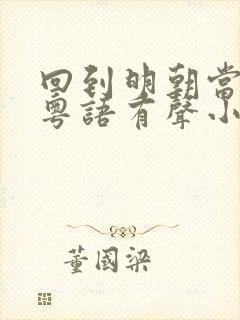 回到明朝當
粵語有聲小
董國梁